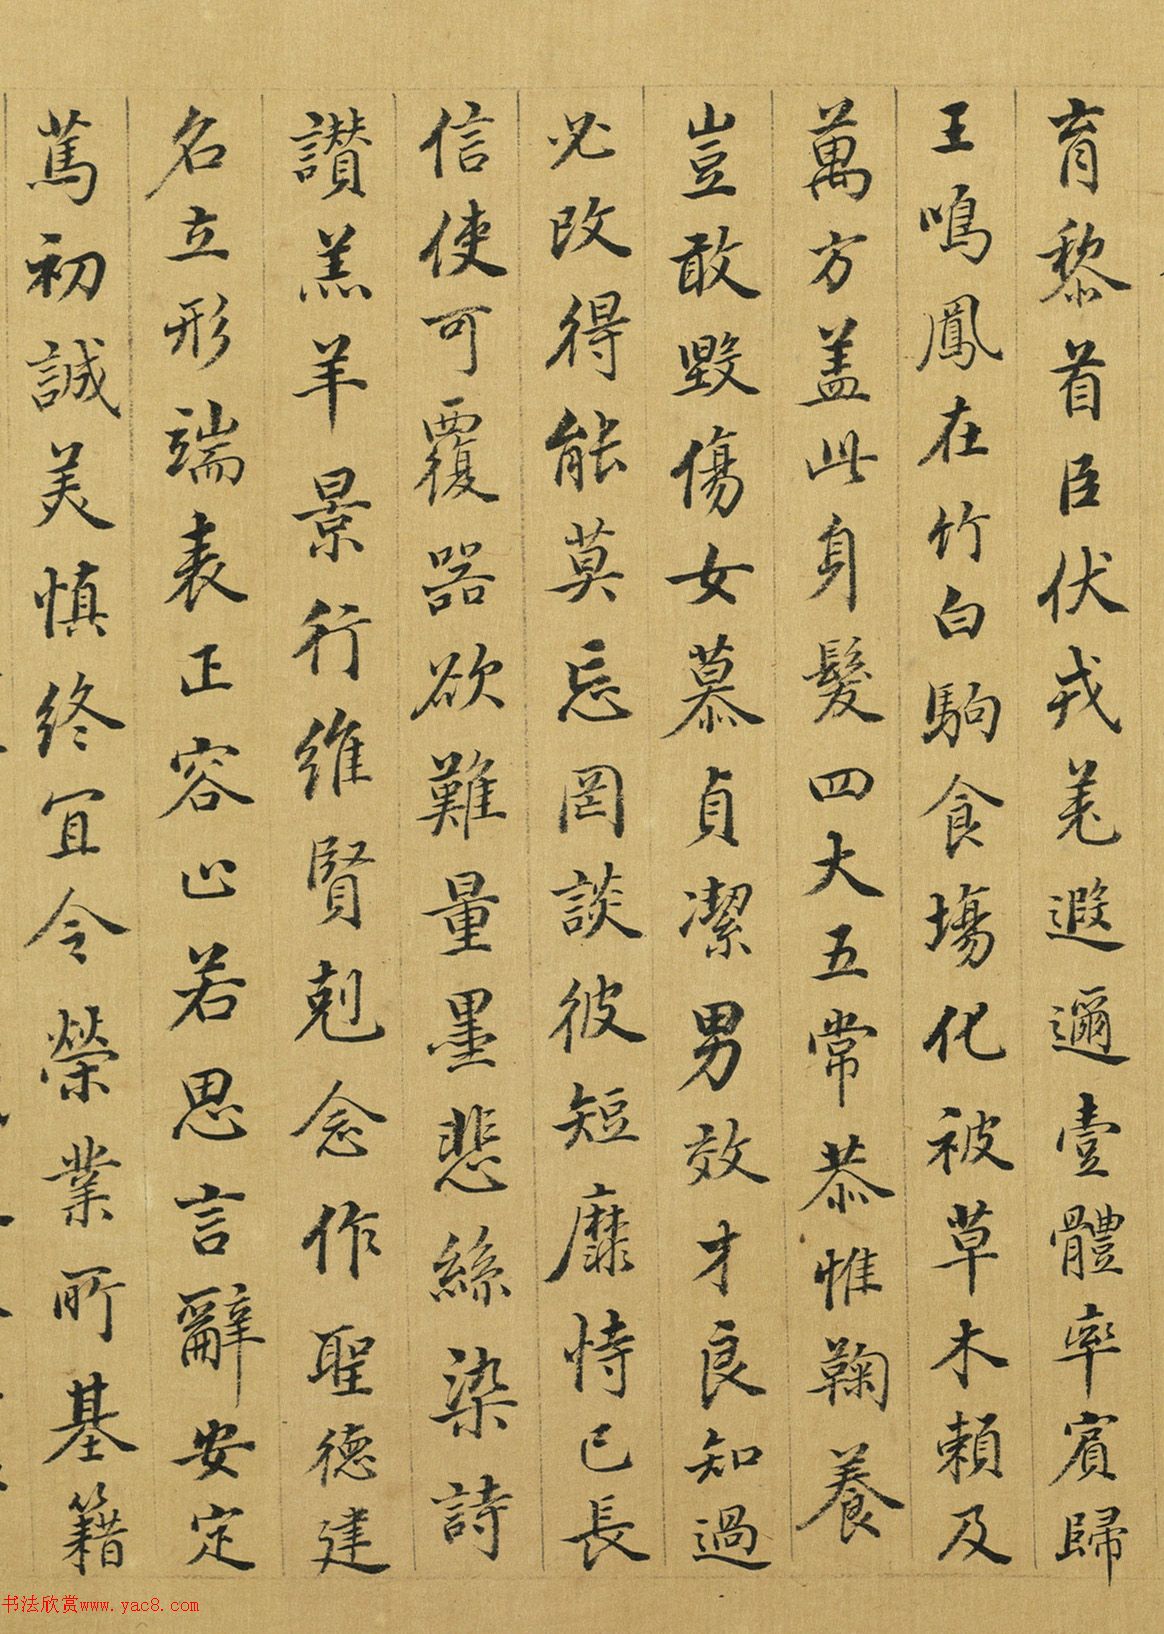 育黎首臣伏戎羌遐邇壹體率賓歸
王鳴鳳在竹白駒食場化被草木賴及
萬方盖此身髮四大五常恭惟鞠養
豈敢毀傷女慕貞潔男效才良知過
必改得能莫忘罔談彼短靡恃己長
信使可覆器欲難量墨悲絲染詩
讚羔羊景行維賢剋念作聖德建
名立形端表正容止若思言辭安定
篤初誠美慎終宜令榮業所基籍
书法欣赏www.yac8.com